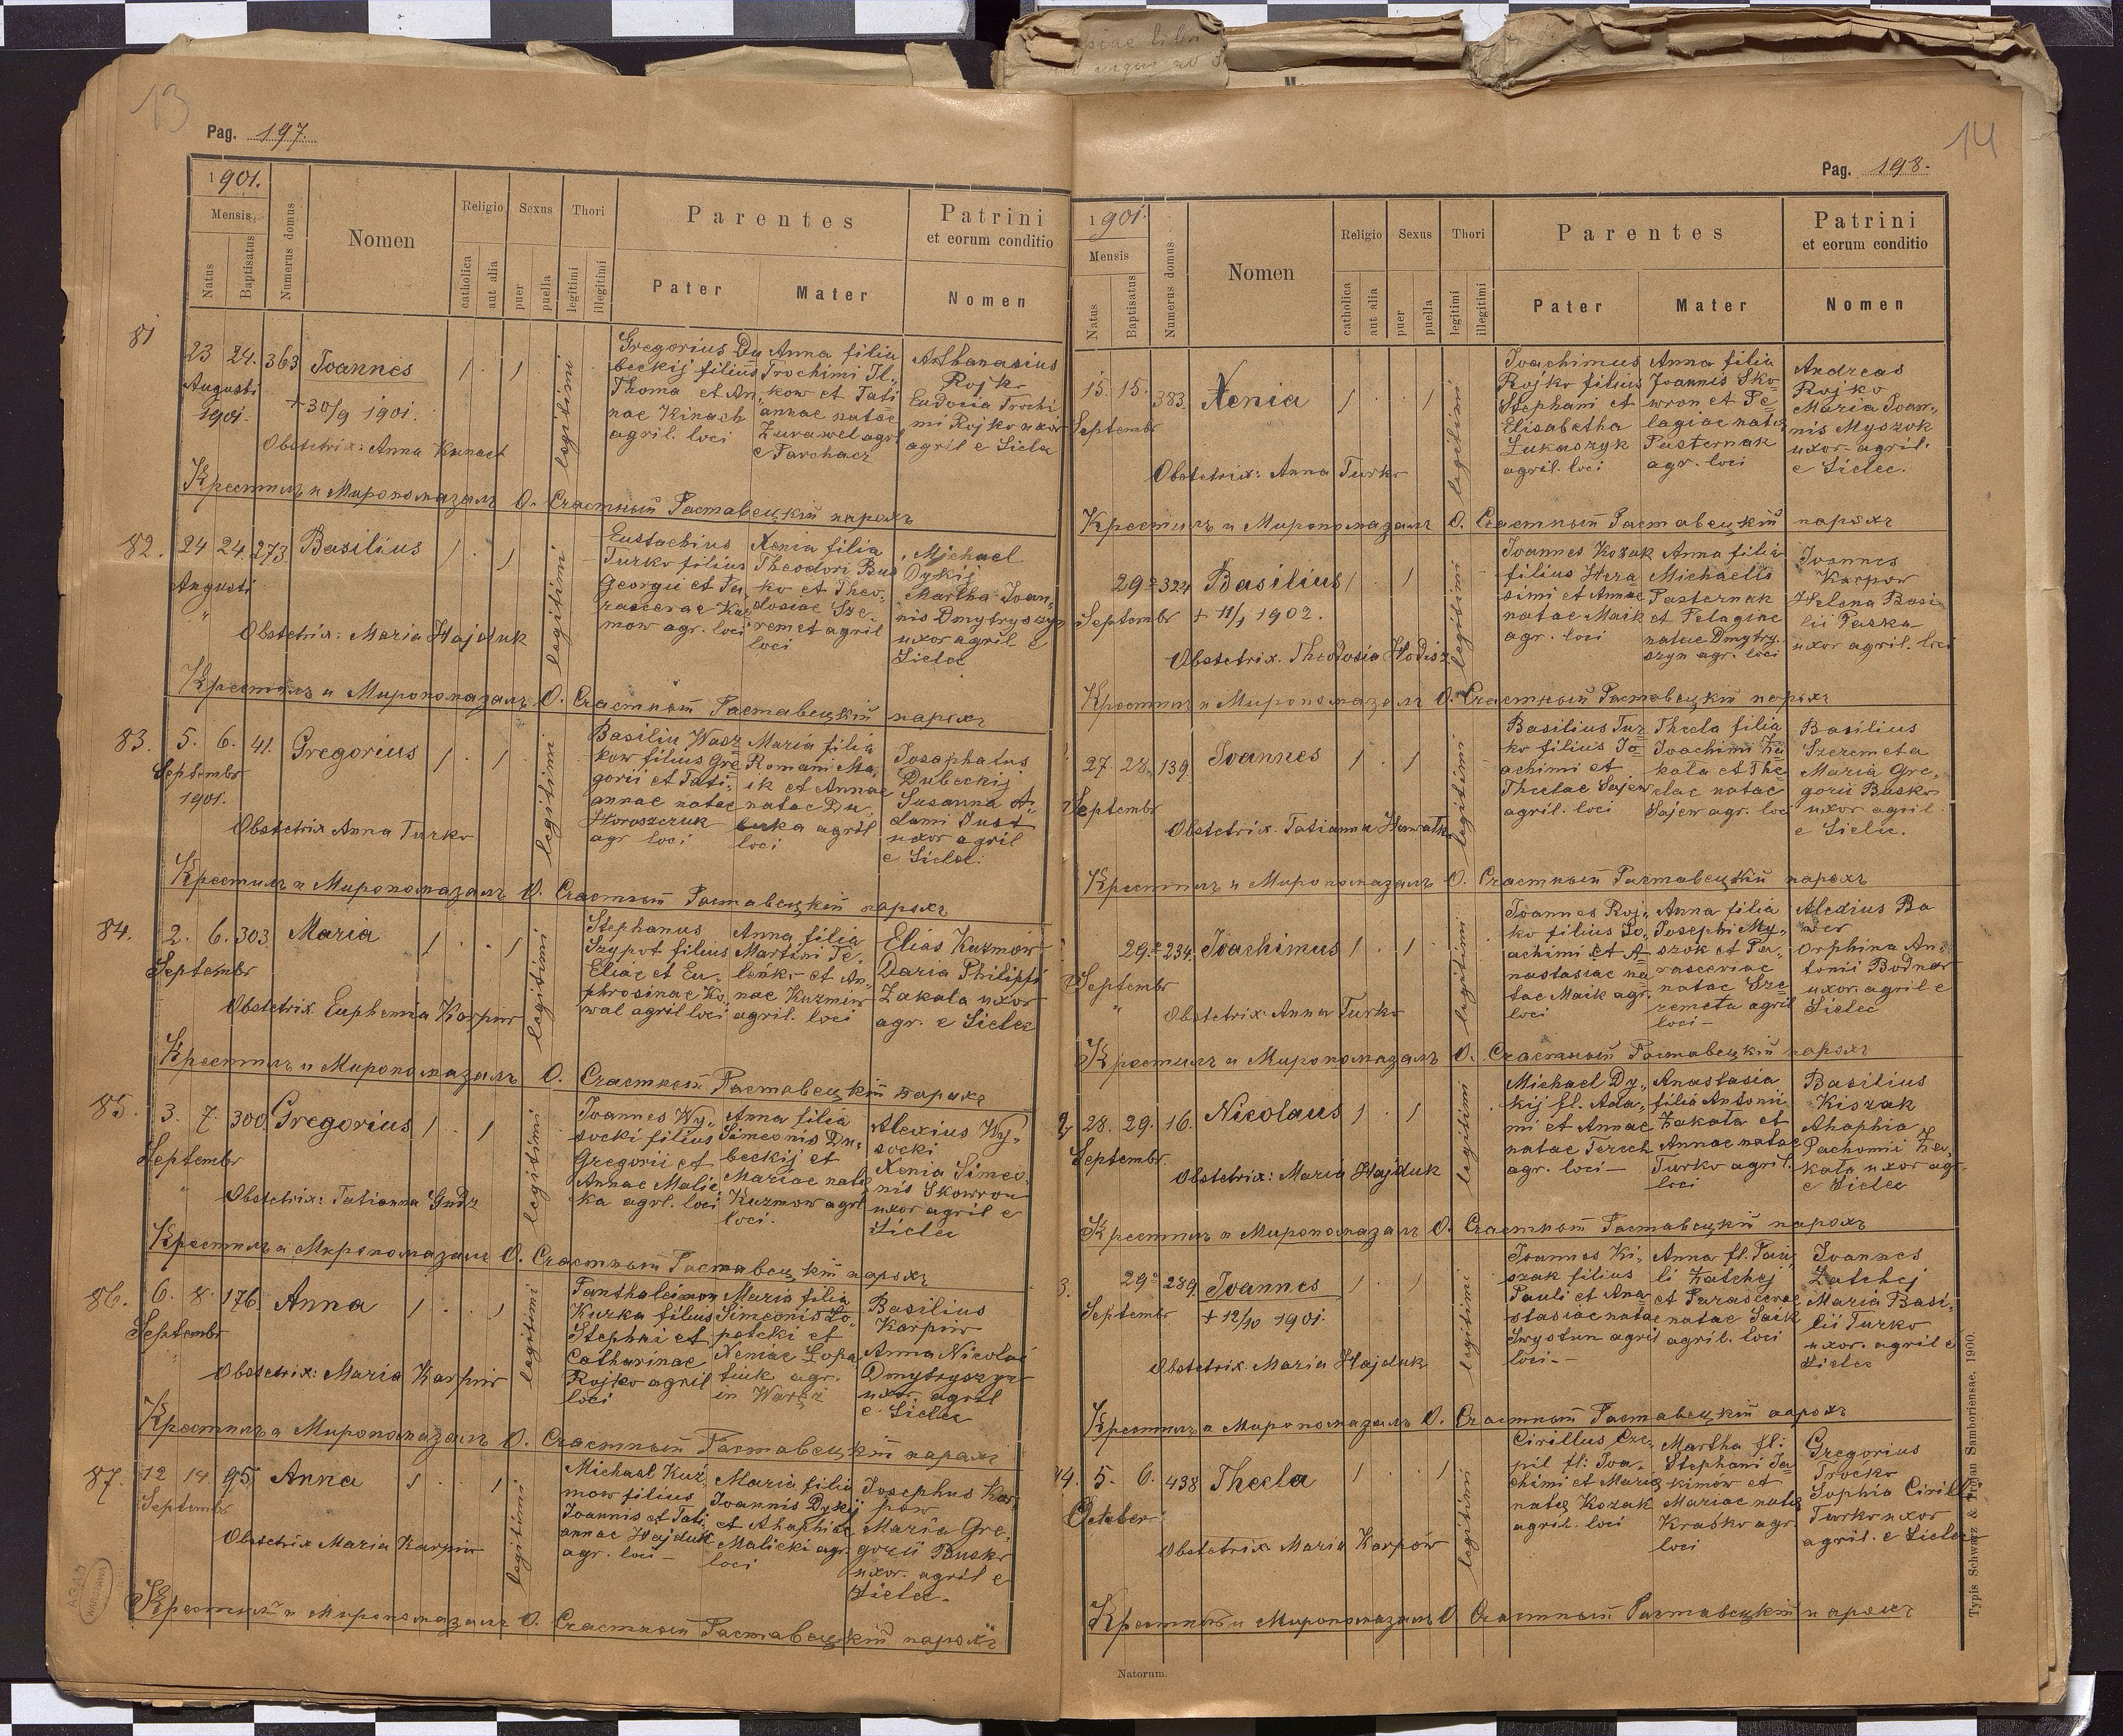 13
Pag. 197.
1901.
Mensis
Natus
Baptisatus
Numerus domus
Nomen
Religio
catholica
aut alia
Sexus
puer
puella
Thori
legitimi
illegitimi
Parentes
Pater
Mater
Patrini
et eorum conditio
Nomen
81
23 24. 363 Joannes
Augusti
1901.
+ 30/9 1901.
Obstetrix: Anna
legitimi
Gregorius Du
beckij filius
Thoma et An
nae Kinach
agril. loci
Anna filia
Trochimi Il„
kow et Tati
annae natae
Zurawel agril
e Parchacz
Athanasius
Rojko
Eudocia Trochi
mi Rojko uxor
agril e Sielec
Крестилъ и Миропомазалъ О. Счастный Раставецкій парохъ
82. 24 24. 273. Basilius
Augusti
"
Obstetrix: Maria Hajduk
legitimi
Eustachius
Turko filius
Georgii et Pa„
rascevae Kuź
mow agr. loci
Xenia filia
Theodori Bus
ko et Theo„
dosiae Sze„
remet agril
loci
Michael
Dykij
Martha Joan„
nis Dmytryszyn
uxor agril e
Sielec
Крестилъ и Миропомазалъ О. Счастный Раставецкій парохъ
83. 5. 6. 41. Gregorius
Septembr
1901.
Obstetrix Anna Turko
legitimi
Basiliu Wasz
kow filius Gre
gorii et Tati„
annae natae
Horoszczuk
agr loci
Maria filia
Romani Ma„
ik et Annae
natae Du
ka agril
loci
Josaphatus
Dubeckij
Susanna A„
dami Just
uxor agril
e Sielec.
Крестилъ и Миропомазалъ О. Счастный Раставецкій парохъ
84. 2. 6. 303 Maria
Septembr
Obstetrix Euphemia Karpiw
legitimi
Stephanus
Szypot filius
Eliae et Eu„
phrosinae Ko„
wal agril loci
Anna filia
Martini Te„
leńko et An„
nae Kuzmiw
agril. loci
Elias Kuzmow
Daria Philippi
Zakala uxor
agr. e Sielec
Крестилъ и Миропомазалъ О. Счастный Раставецкій парохъ
85. 3. 7. 300. Gregorius
Septembr
"
Obstetrix: Tatianna Gudz
legitimi
Joannes Wy„
socki filius
Gregorii et
Annae Malic„
ka agrl. loci
Anna filia
Simeonis Du„
beckij et
Mariae natae
Kuzmow agrl
loci.
Alexius Wy„
socki
Xenia Simeo„
nis Skowron
uxor agril e
Sielec
Крестилъ и Миропомазалъ О. Счастный Раставецкій парохъ
86. 6. 8. 176. Anna
Septembr
"
Obstetrix: Maria Karpiw
legitimi
Panthaleimon
Kurka filius
Stephai et
Catharinae
Rojko agril
loci
Maria filia
Simeonis Lo„
patcki et
Xeniae Lopa
tiuk agr.
in
Basilius
Karpiw
Anna Nicolai
Dmytryszyn
uxor. agril
e Sielec
Крестилъ и Миропомазалъ О. Счастный Раставецкій парохъ
87. 12 14. 95 Anna
Septembr
Obstetrix Maria Karpiw
legitimi
Michael Kuź„
mow filius
Joannis et Tati
annae Hajduk
agr. loci —
Maria filia
Joannis Dykij
et Ahaphiae
Malicki agr
loci
Josephus Kar„
pow
Maria Gre„
gorii Busko
uxor. agril e
Sielec.
Крестилъ и Миропомазалъ О. Счастный Раставецкій парохъ
14
Pag. 198.
1901.
Mensis
Natus
Baptisatus
Numerus domus
Nomen
Religio
catholica
aut alia
Sexus
puer
puella
Thori
legitimi
illegitimi
Parentes
Pater
Mater
Patrini
et eorum conditio
Nomen
15. 15. 383. Xenia
Septembr
Obstetrix: Anna Turko
legitimi
Joachimus
Rojko filius
Stephani et
Elisabetha
Lukaszyk
agril. loci
Anna filia
Joannis Sko„
wron et Pe„
lagiae natae
Pasternak
agr. loci
Andreas
Rojko
Maria Joan„
nis Myszok
uxor agril.
e Sielec.
Крестилъ и Миропомазалъ О. Счастный Раставецкій парохъ
29= 324 Basilius
Septembr + 11/1 1902.
Obstetrix. Theodosia
legitimi
Joannes Kozak
filius Hera„
simi et Annae
natae Maik
agr. loci
Anna filia
Michaelis
Pasternak
et Pelagiae
natae Dmytry„
szyn agr. loci
Joannes
Karpow
Helena Basi„
lii Paska
uxor agril. loci
Крестилъ и Миропомазалъ О. Счастный Раставецкій парохъ
27. 28. 139. Joannes
Septembr
Obstetrix. Tatianna
legitimi
Basilius Tur„
ko filius Jo„
achimi et
Theclae Sajew
agril. loci
Thecla filia
Joachimi Za„
kala et The„
clae natae
Sajew agr. loci
Basilius
Szeremeta
Maria Gre„
gorii Busko
uxor agril
e Sielec.
Крестилъ и Миропомазалъ О. Счастный Раставецкій парохъ
29= 234. Joachimus
Septembr
"
Obstetrix: Anna Turko
legitimi
Joannes Roj„
ko filius Jo„
achimi et A„
nastasiae na
tae Maik agr.
loci
Anna filia
Josephi My„
szok et Pa„
rasceviae
natae Sze„
remeta agril
loci —
Alexius Ba
wer
Orphina An„
tonii Bodnar
uxor. agril e
Sielec
Крестилъ и Миропомазалъ О. Счастный Раставецкій парохъ
2 28. 29. 16. Nicolaus
Septembr.
Obstetrix: Maria Hajduk
legitimi
Michael Dy„
kij fl. Ada„
mi et Annae
natae Terech
agr. loci —
Anastasia
filia Antoni
Zakala et
Annae natae
Turko agril.
loci
Basilius
Kiszak
Ahaphia
Pachomii Za„
kala uxor agr
e Sielec
Крестилъ и Миропомазалъ О. Счастный Раставецкій парохъ
3. 29= 289. Joannes
Septembr + 12/10 1901.
Obstetrix Maria Hajduk
legitimi
Joannes Ki„
szak filius
Pauli et Ana„
stasiae natae
Swystun agril
loci —
Anna fl. Pau„
li Zatchej
et Parascevae
natae Saik
agril. loci
Joannes
Zatchej
Maria Basi„
lii Turko
uxor. agril e
Sielec
Крестилъ и Миропомазалъ О. Счастный Раставецкій парохъ
4. 5. 6. 438 Thecla
October
Obstetrix Maria Karpow
legitimi
Cirillus Cze„
pil fl: Joa„
chimi et Maria
natae Kozak
agril. loci
Martha fl:
Stephani Ja„
kimow et
Mariae natae
Krasko agr.
loci
Gregorius
Troćko
Sophia Cirilli
Turko uxor
agril. e Sielec
Крестилъ и Миропомазалъ О. Счастный Раставецкій парохъ
Natorum.
Typis Schwarz & Trojan Samboriensae. 1900.
AGAD
WARSZAWA